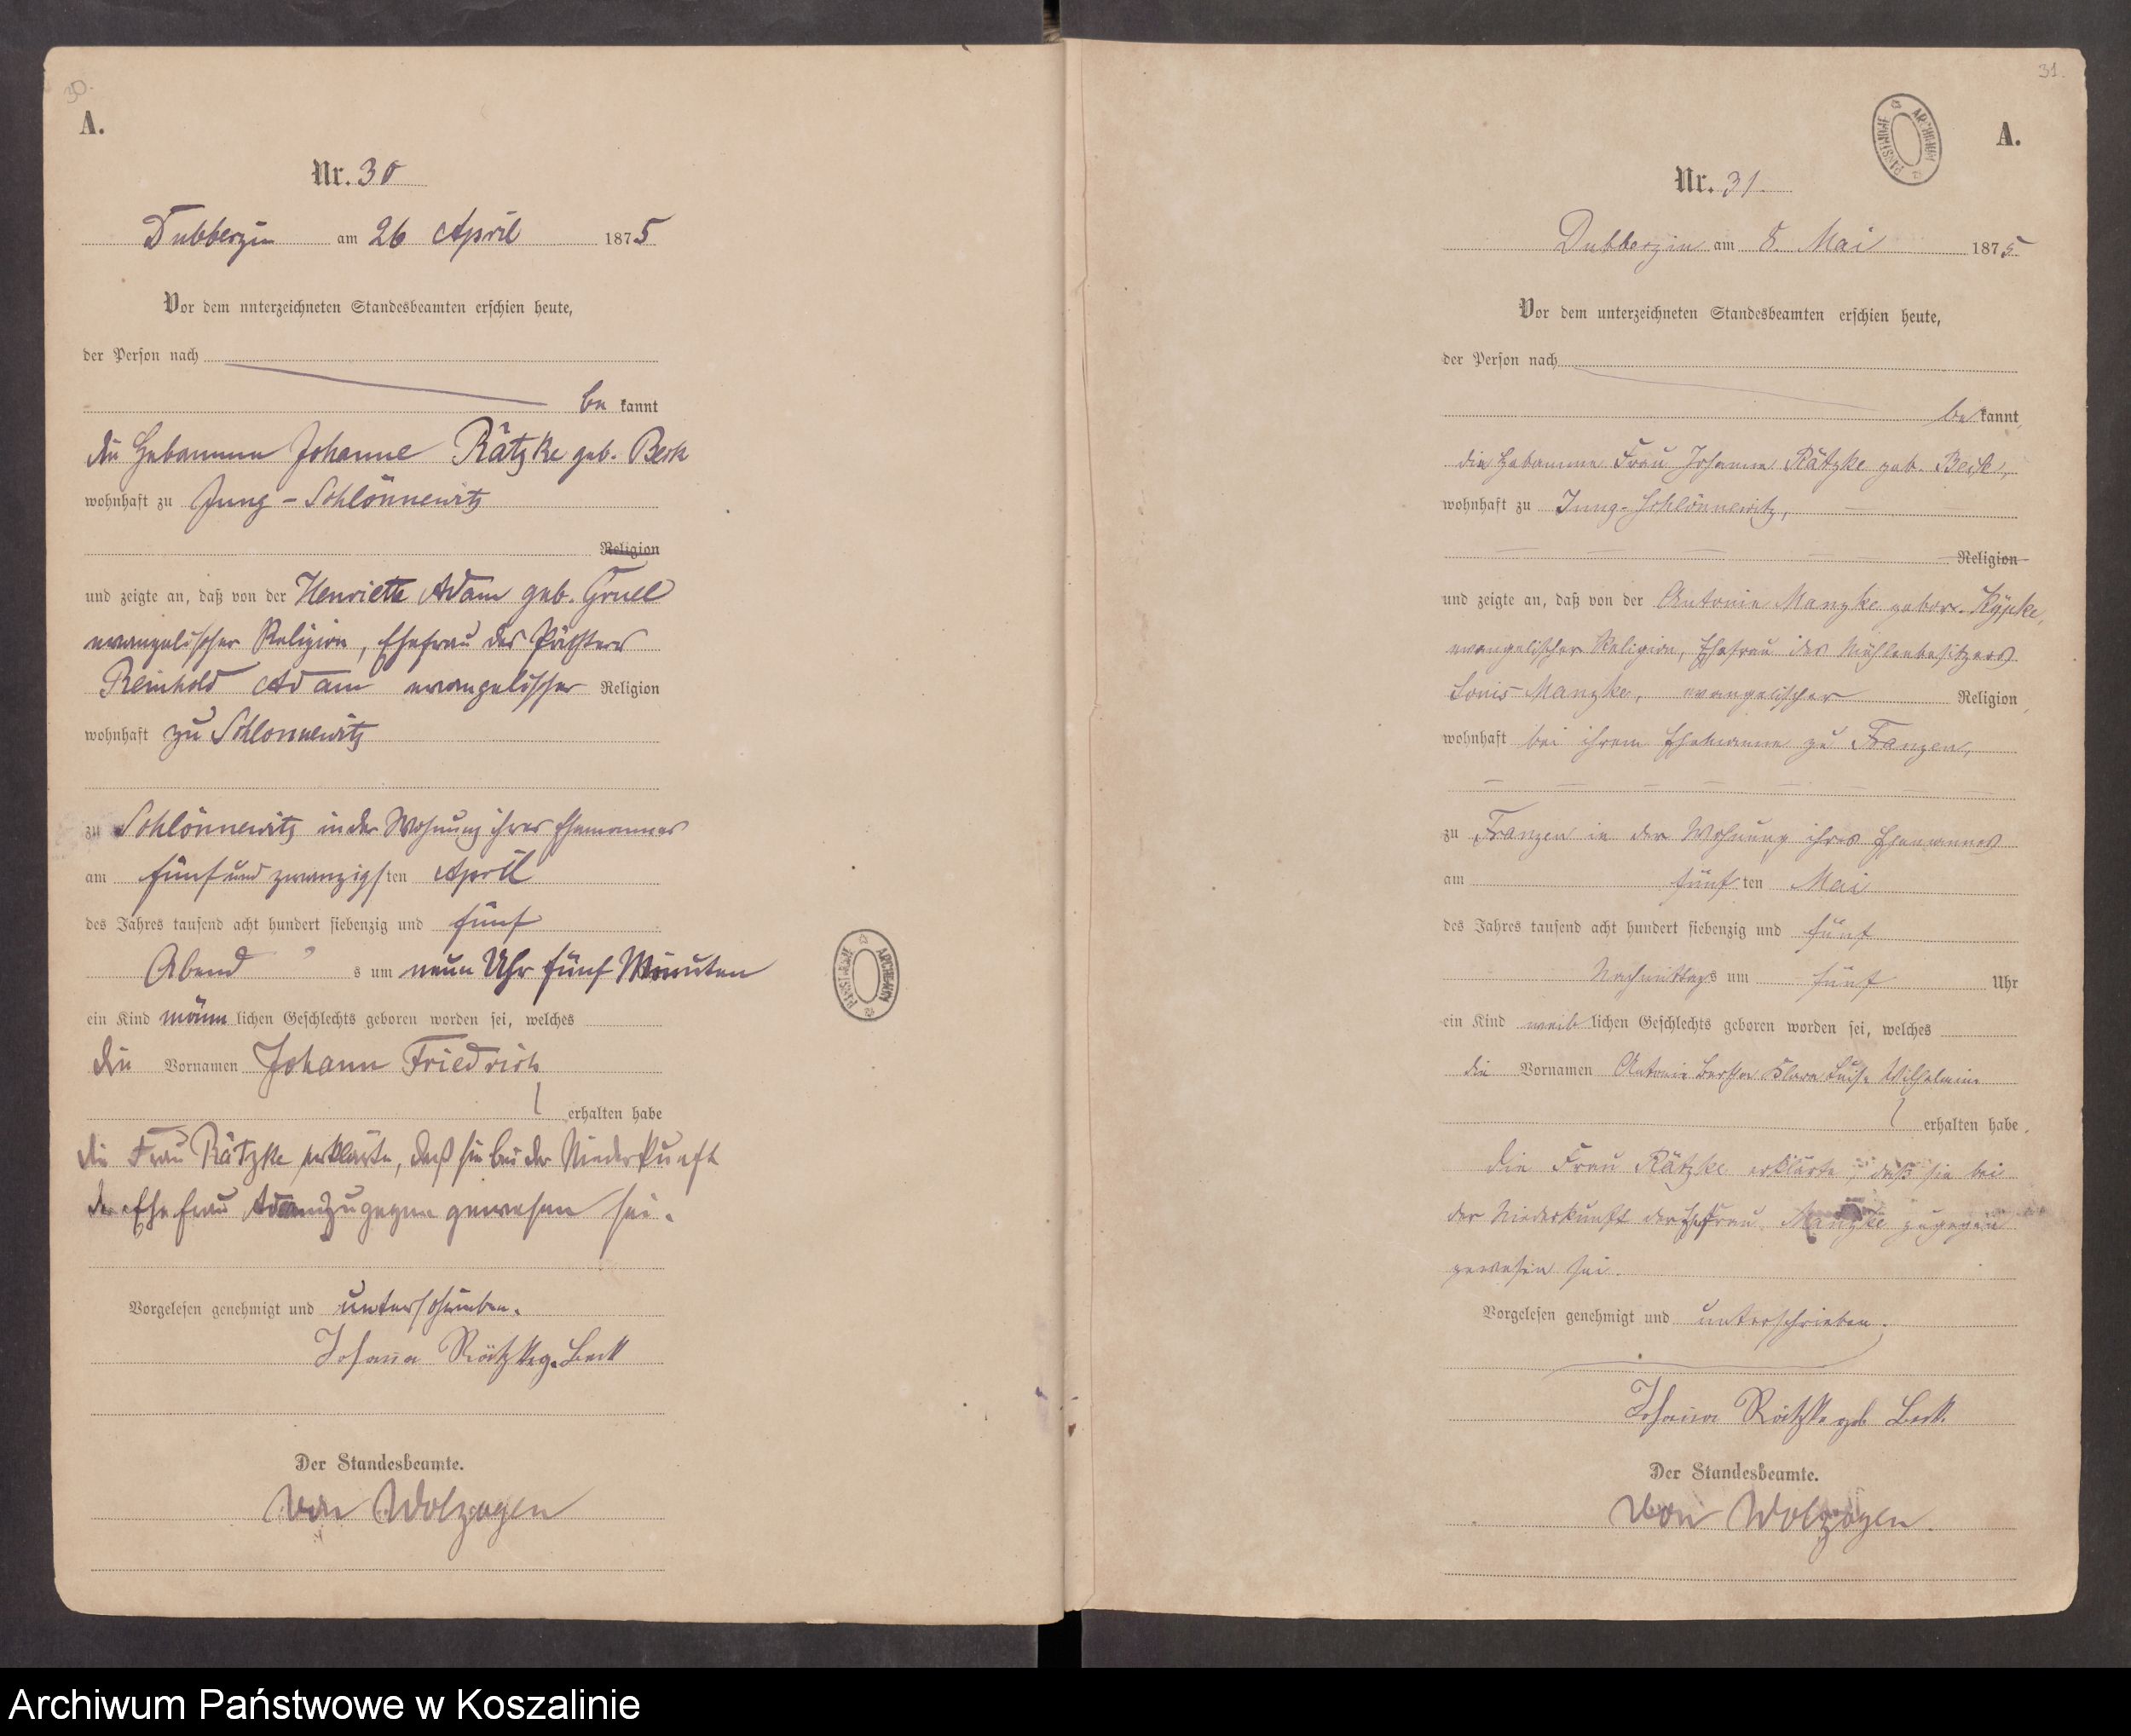 30.
A.
Nr. 30
Dubberzin am 26 April 1875
Vor dem unterzeichneten Standesbeamten erschien heute,
der Person nach
be kannt
die Hebamme Johanne Rätzke geb. Beck
wohnhaft zu Jung-Schlönnewitz
Religion
und zeigte an, daß von der Henriette Adam geb. Gruel
evangelischer Religion, Ehefrau des Pächters
Reinhold Adam evangelischer Religion
wohnhaft zu Schlonnewitz
zu Schlönnewitz in der Wohnung ihres Ehemannes
am fünf und zwanzigsten April
des Jahres tausend acht hundert siebenzig und fünf
Abend s um neun Uhr fünf Minuten
ein Kind männ lichen Geschlechts geboren worden sei, welches
die Vornamen Johann Friedrich
erhalten habe
die Frau Rätzke erklärte, daß sie bei der Niederkunft
der Ehefrau Adam zugegen gewesen sei.
Vorgelesen genehmigt und unterschrieben.
Johanna Rätzke g. Beck
Der Standesbeamte.
von Wolzogen
31.
ARCHIWUM PAŃSTWOWE
A.
Nr. 31.
Dubberzin am 8. Mai 1875
Vor dem unterzeichneten Standesbeamten erschien heute,
der Person nach
be kannt,
die Hebamme Frau Johanne Rätzke geb. Beck,
wohnhaft zu Jung-Schlönnewitz,
Religion
und zeigte an, daß von der Antonie Manzke gebor. Kypke,
evangelischer Religion, Ehefrau des Mühlenbesitzers
Louis Manzke, evangelischer Religion,
wohnhaft bei ihrem Ehemanne zu Franzen,
zu Franzen in der Wohnung ihres Ehemannes
am fünf ten Mai
des Jahres tausend acht hundert siebenzig und fünf
Nachmittags um fünf Uhr
ein Kind weib lichen Geschlechts geboren worden sei, welches
die Vornamen Antonie Bertha Klara Luise Wilhelmine
erhalten habe.
Die Frau Rätzke erklärte, daß sie bei
der Niederkunft der Ehefrau Manzke zugegen
gewesen sei.
Vorgelesen genehmigt und unterschrieben.
Johanna Rätzke geb Beck.
Der Standesbeamte.
von Wolzogen.
ARCHIWUM PAŃSTWOWE
Archiwum Państwowe w Koszalinie